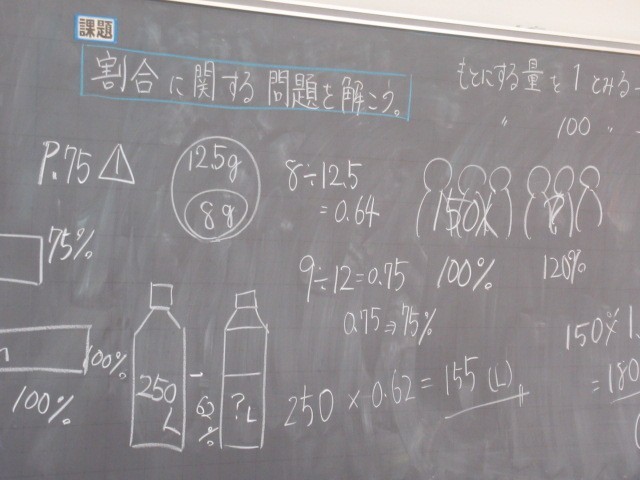 課題
割合に関する問題を解こう。
もとにする量を1とみる→
〃 100 〃
P.75 1
12.5g
8g
8÷12.5
=0.64
150人
?
100%
120%
75%
9÷12=0.75
0.75⇒75%
100%
100%
250
L
62
%
?L
250×0.62=155(L)
150×1.
=180